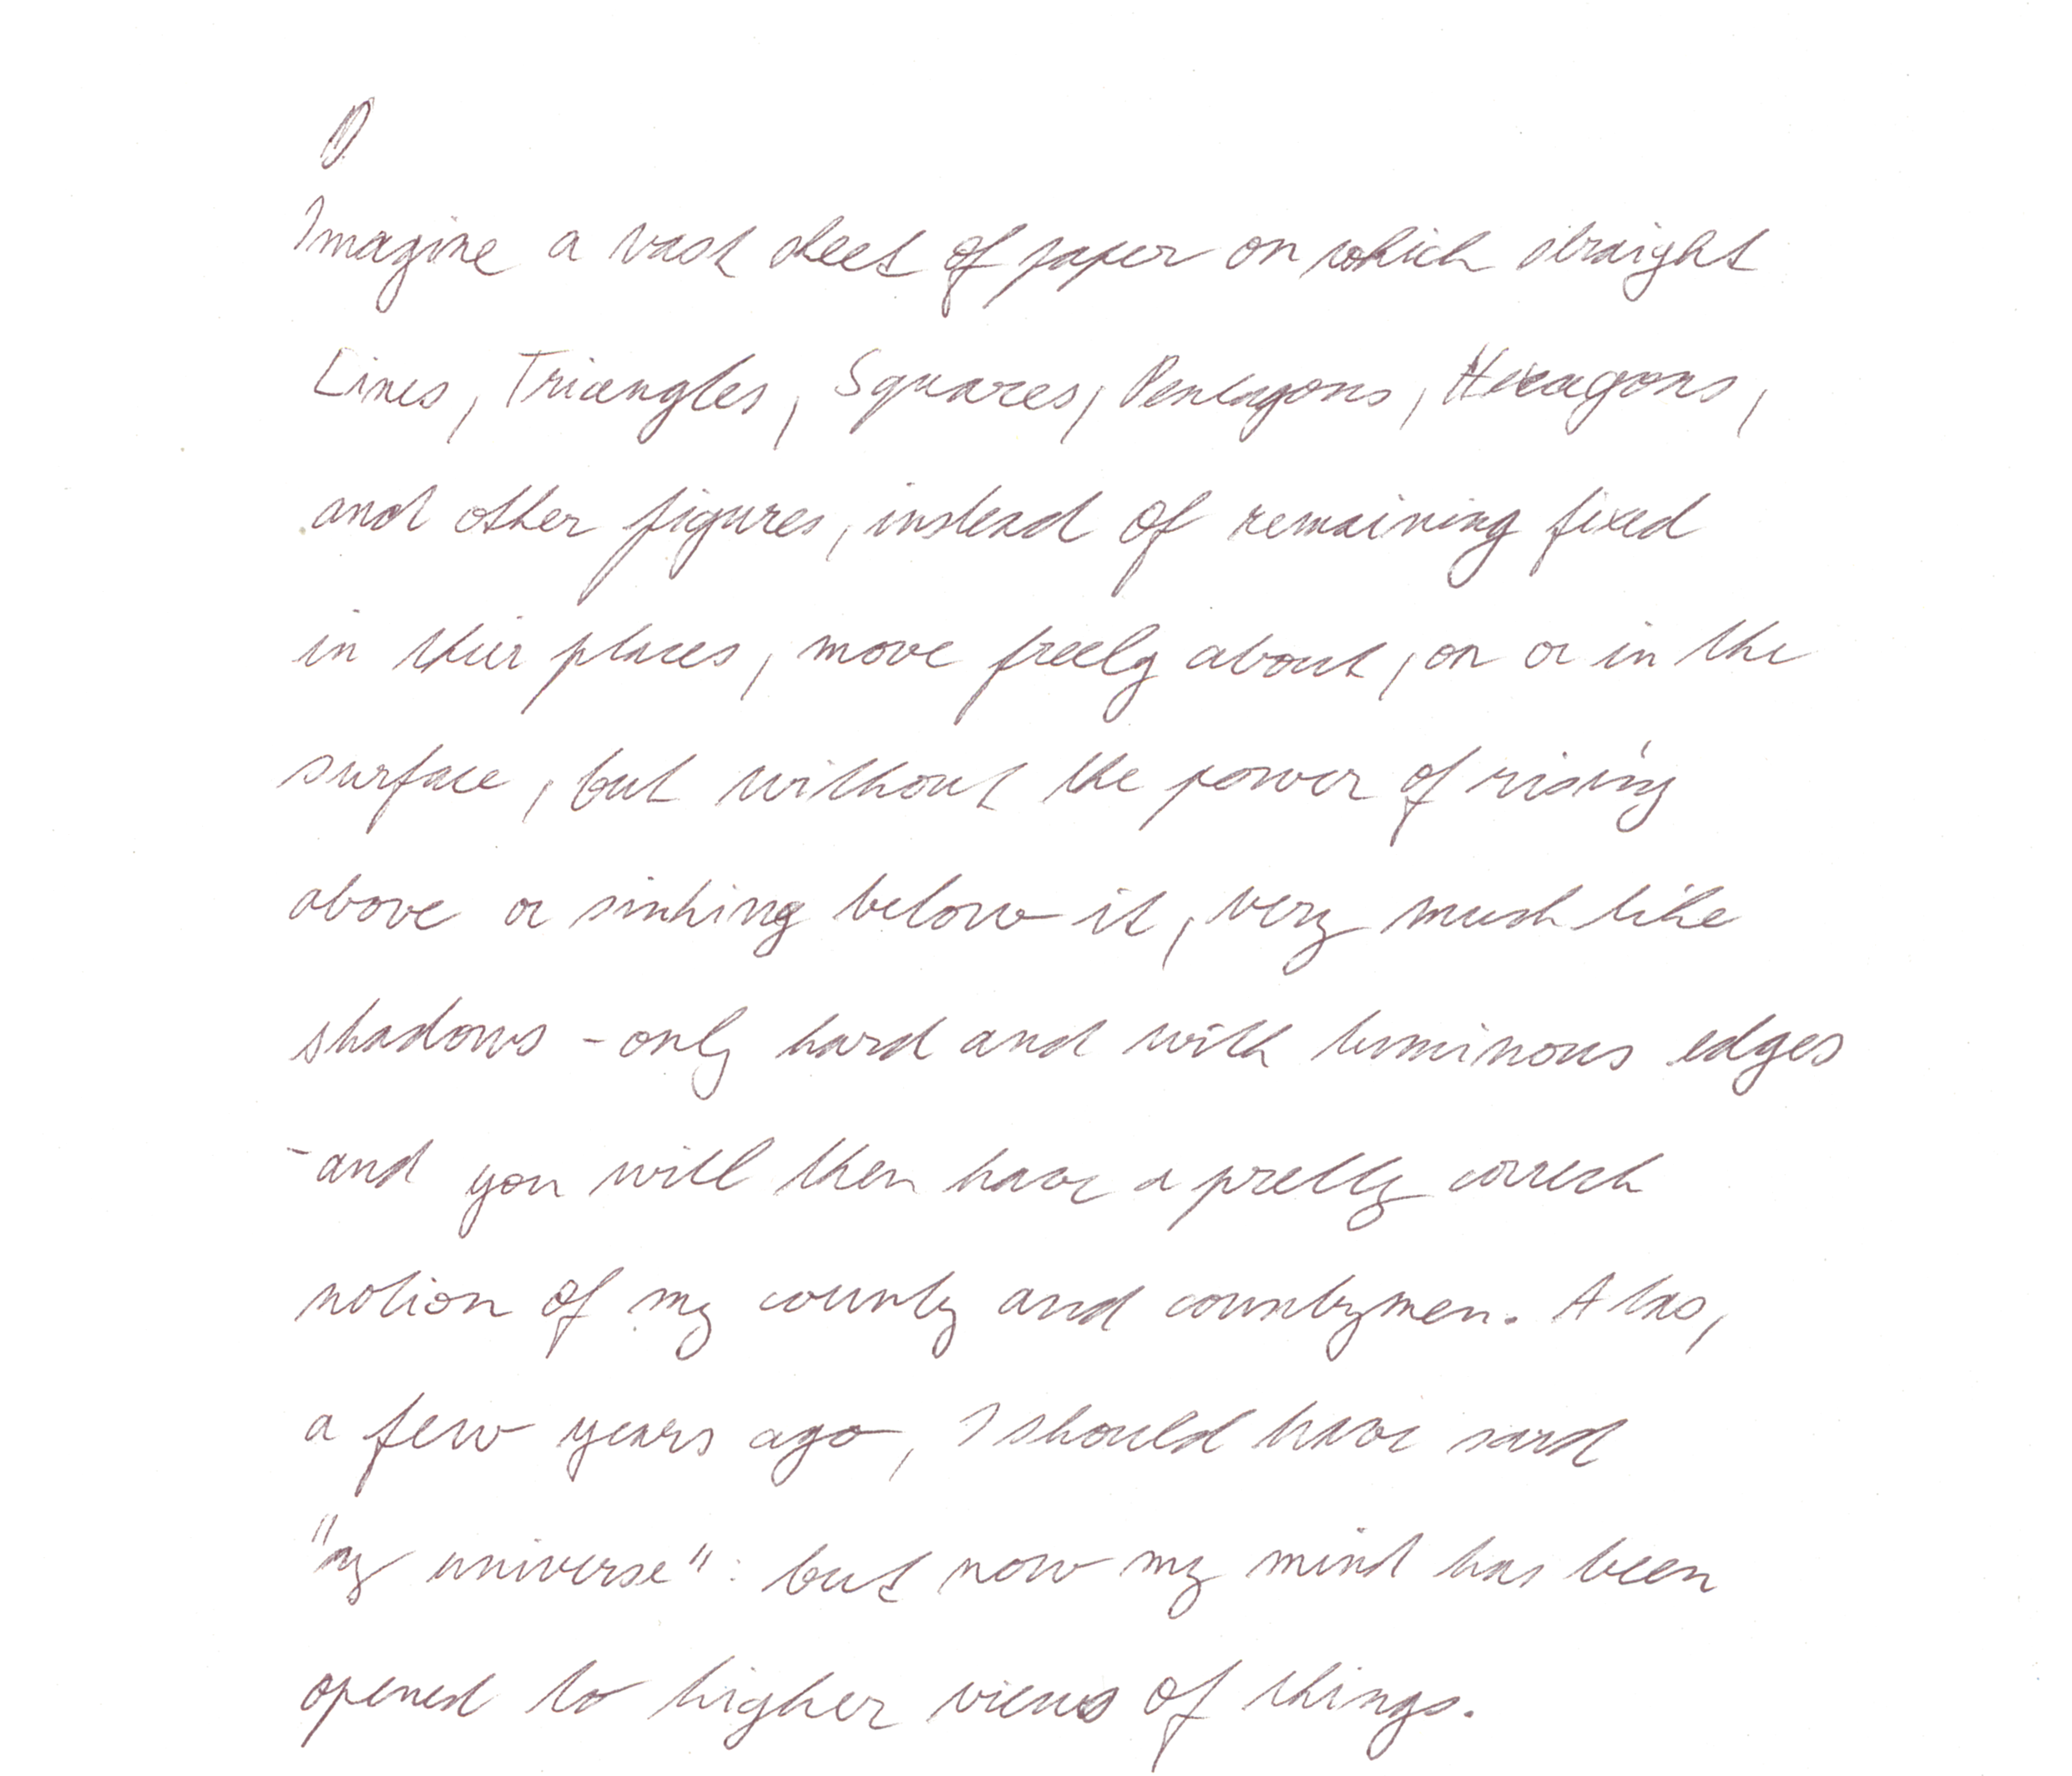 Imagine a vast sheet of paper on which straight
Lines, Triangles, Squares, Pentagons, Hexagons,
and other figures, instead of remaining fixed
in their places, move freely about, on or in the
surface, but without the power of rising
above or sinking below it, very much like
shadows - only hard and with luminous edges
- and you will then have a pretty correct
notion of my country and countrymen. Alas,
a few years ago, I should have said
"my universe": but now my mind has been
opened to higher views of things.